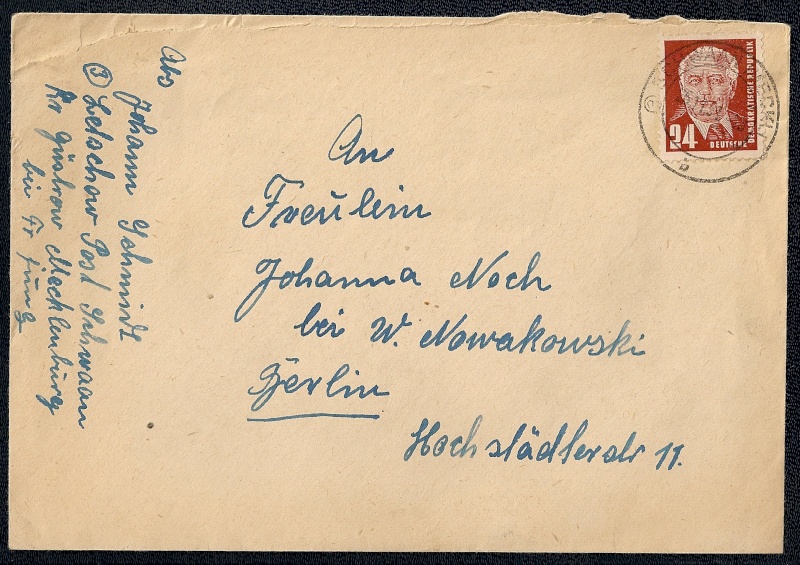 Abs
Johann Schmidt
③ Letschow Post Schwaan
Kr Güstrow Mecklenburg
bei Fr Jung
24
DEUTSCHE
DEMOKRATISCHE REPUBLIK
An
Freulein
Johanna Noch
bei W. Nowakowski
Berlin
Hochstädterstr 11.
b